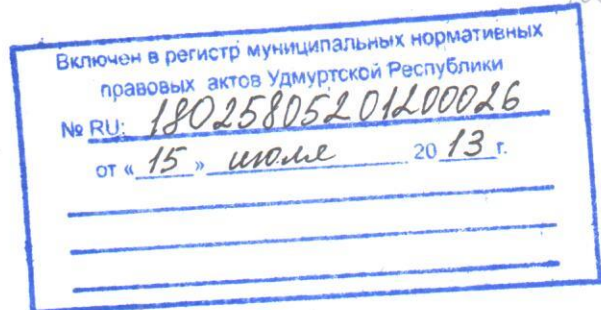 Включен в регистр муниципальных нормативных
правовых актов Удмуртской Республики
№ RU: 18025805201200026
от « 15 » июля 20 13 г.